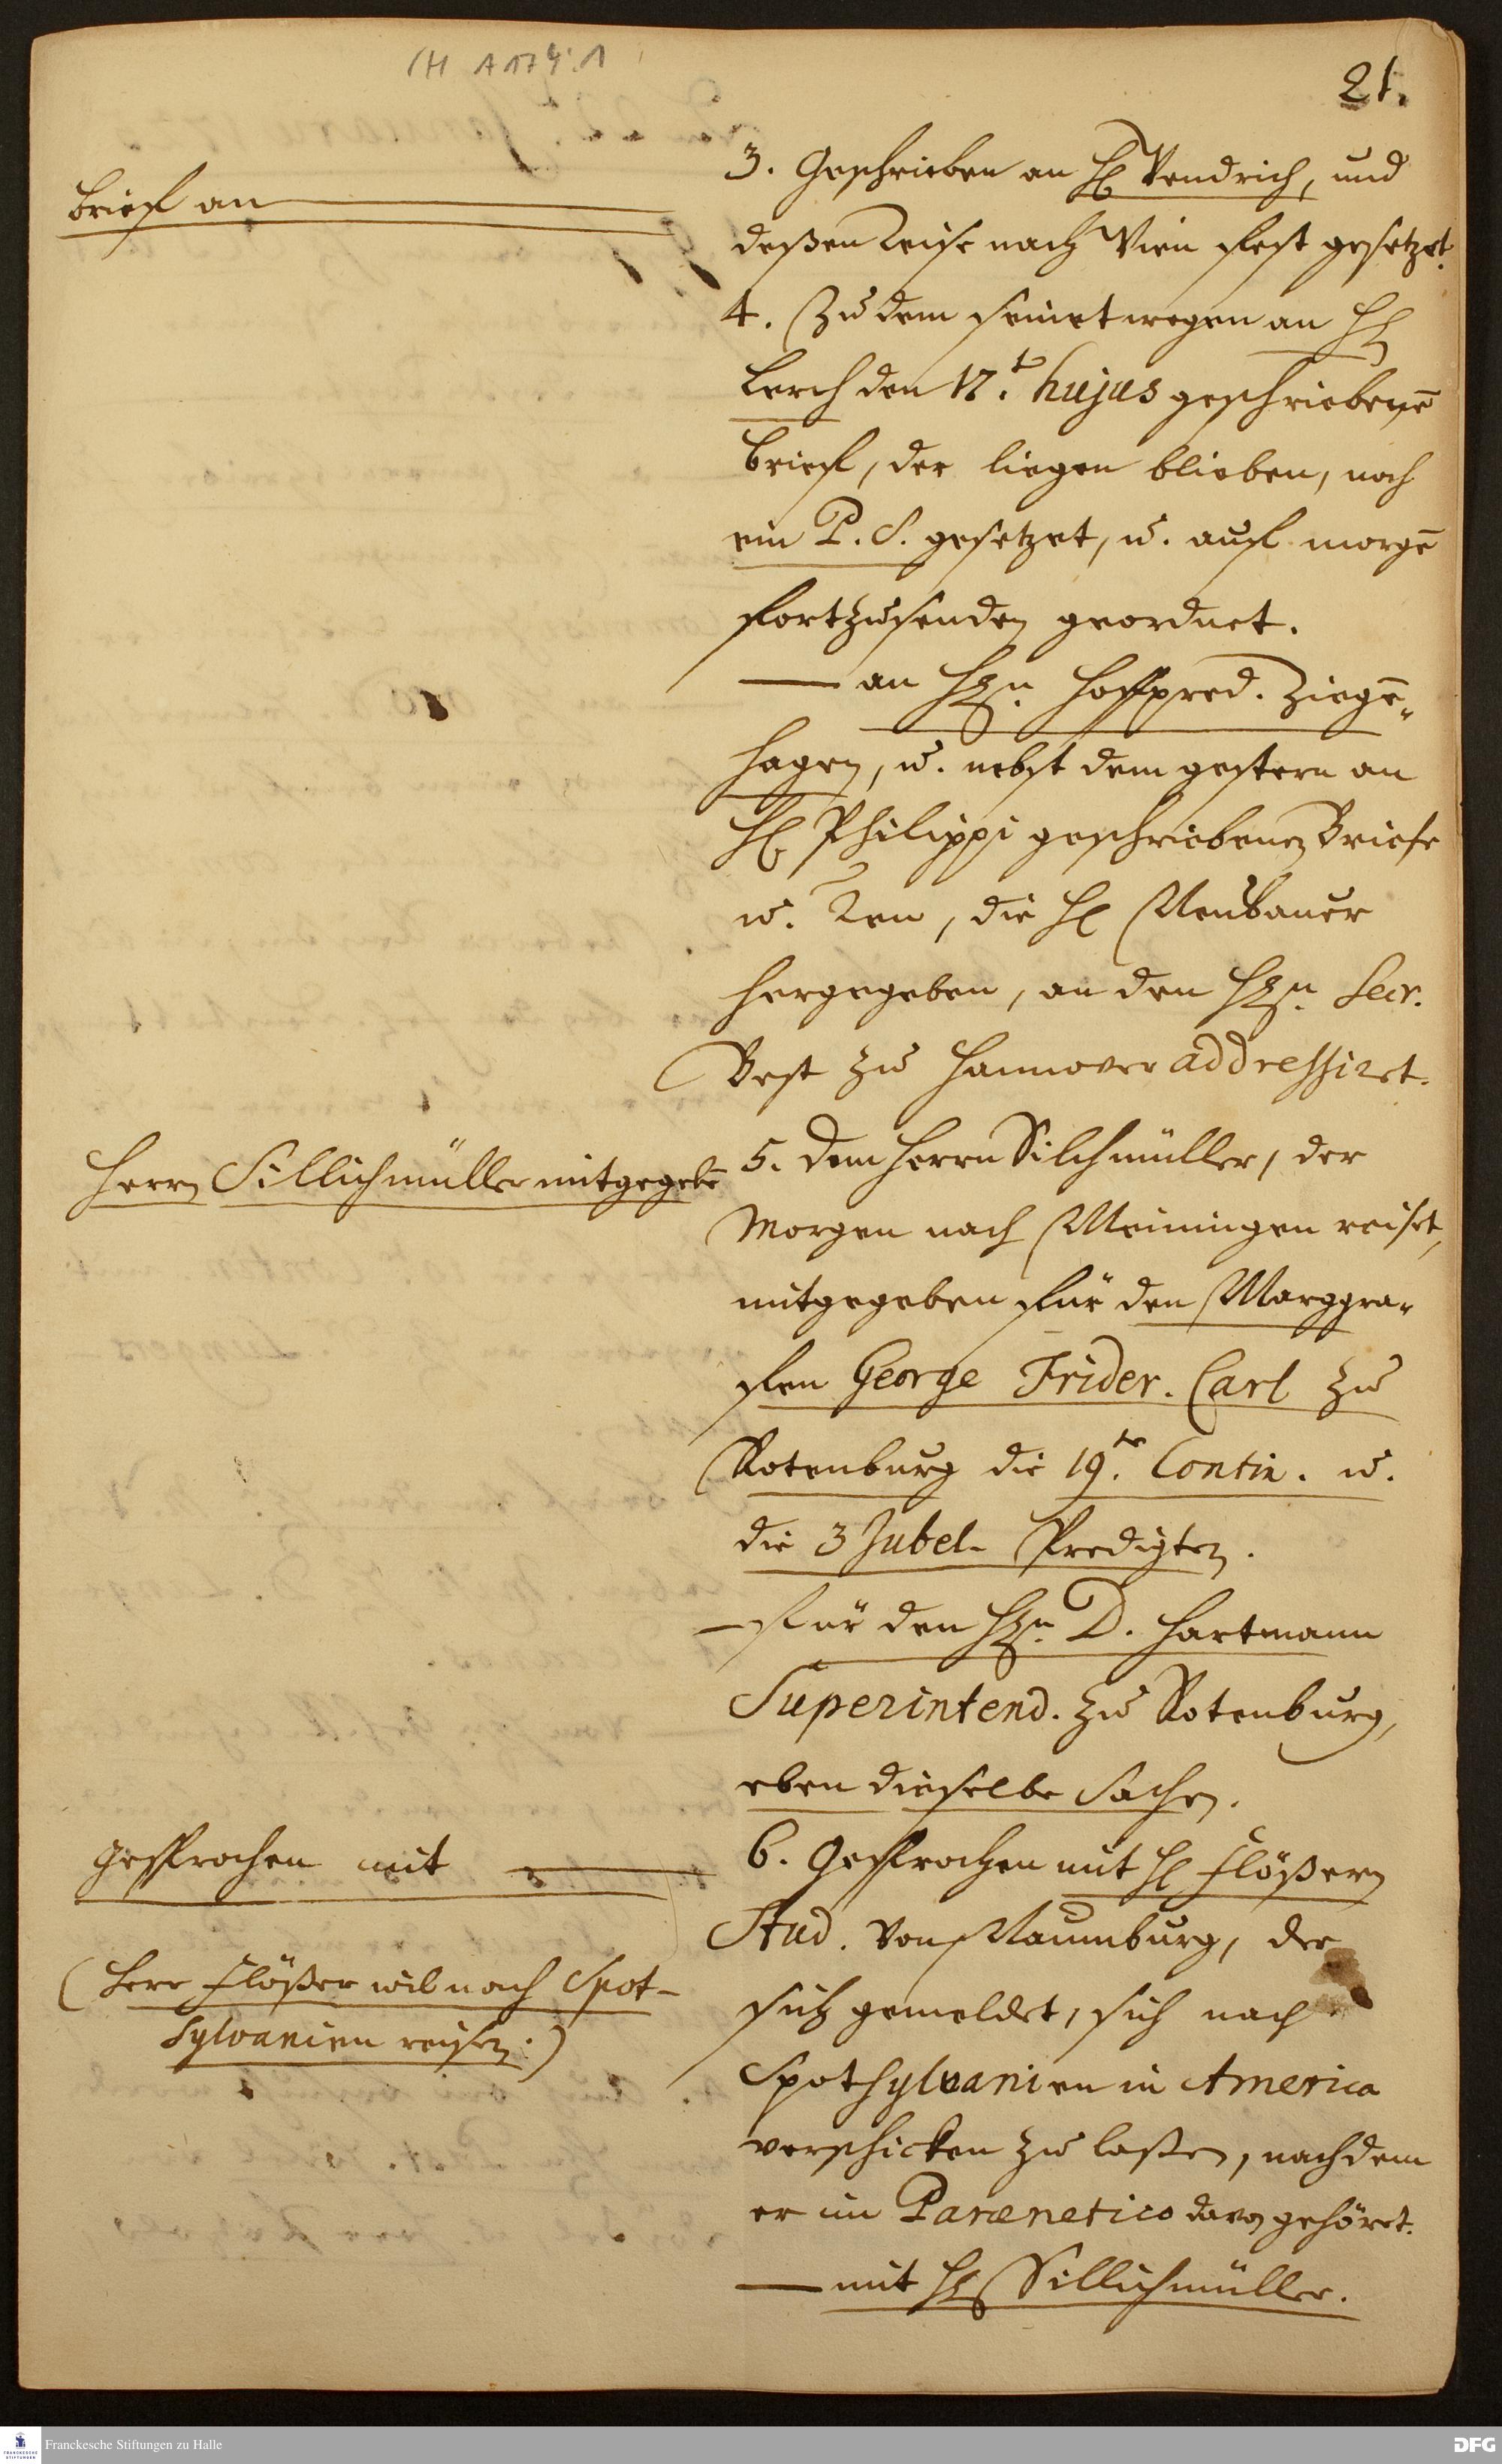 /H A 174:1
21.
Brief an
3. Geschrieben an H. Vendrich, und
deßen Reise nach Wien fest gesetzet.
4. Zu dem seinetwegen an H.
Lerch den 17.t hujus geschriebenē
Brief, der liegen blieben, noch
ein P. S. gesetzet, u. auf morgē
fortzusenden geordnet.
— an Hrn. Hoffpred. Ziegē-
hagen, u. nebst dem gestern an
H. Philippi geschriebenen Briefe
u. die H. Neubauer
hergegeben, an den Hrn. Secr.
Best zu Hannover addressiret.
Herrn Sillichmüller mitgegebē
5. dem Herrn Silchmüller, der
Morgen nach Meiningen reiset,
mitgegeben für den Marggra-
fen George Frider. Carl zu
Rotenburg die 19.te Contin. u.
die 3 Jubel-Predigten.
— für den Hrn. D. Hartmann
Superintend. zu Rotenburg,
eben dieselbe Sachen.
gesprochen mit
6. Gesprochen mit H. Flößern
Stud. von Naumburg, der
(Herr Flößer wil nach Spot-
sylvanien reisen.)
sich gemeldet, sich nach
Spothsylvanien in America
verschicken zu laßen, nachdem
er im Parænetico davon gehöret.
— mit H. Sillichmüller.
Franckesche Stiftungen zu Halle
DFG